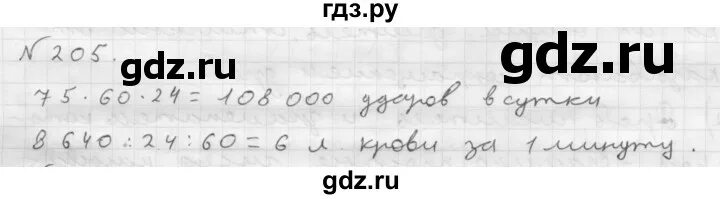 гдз.ру
N 205. gdz.ru
75 · 60 · 24 = 108 000 ударов в сутки
8 640 : 24 : 60 = 6 л крови за 1 минуту.
gdz.ru